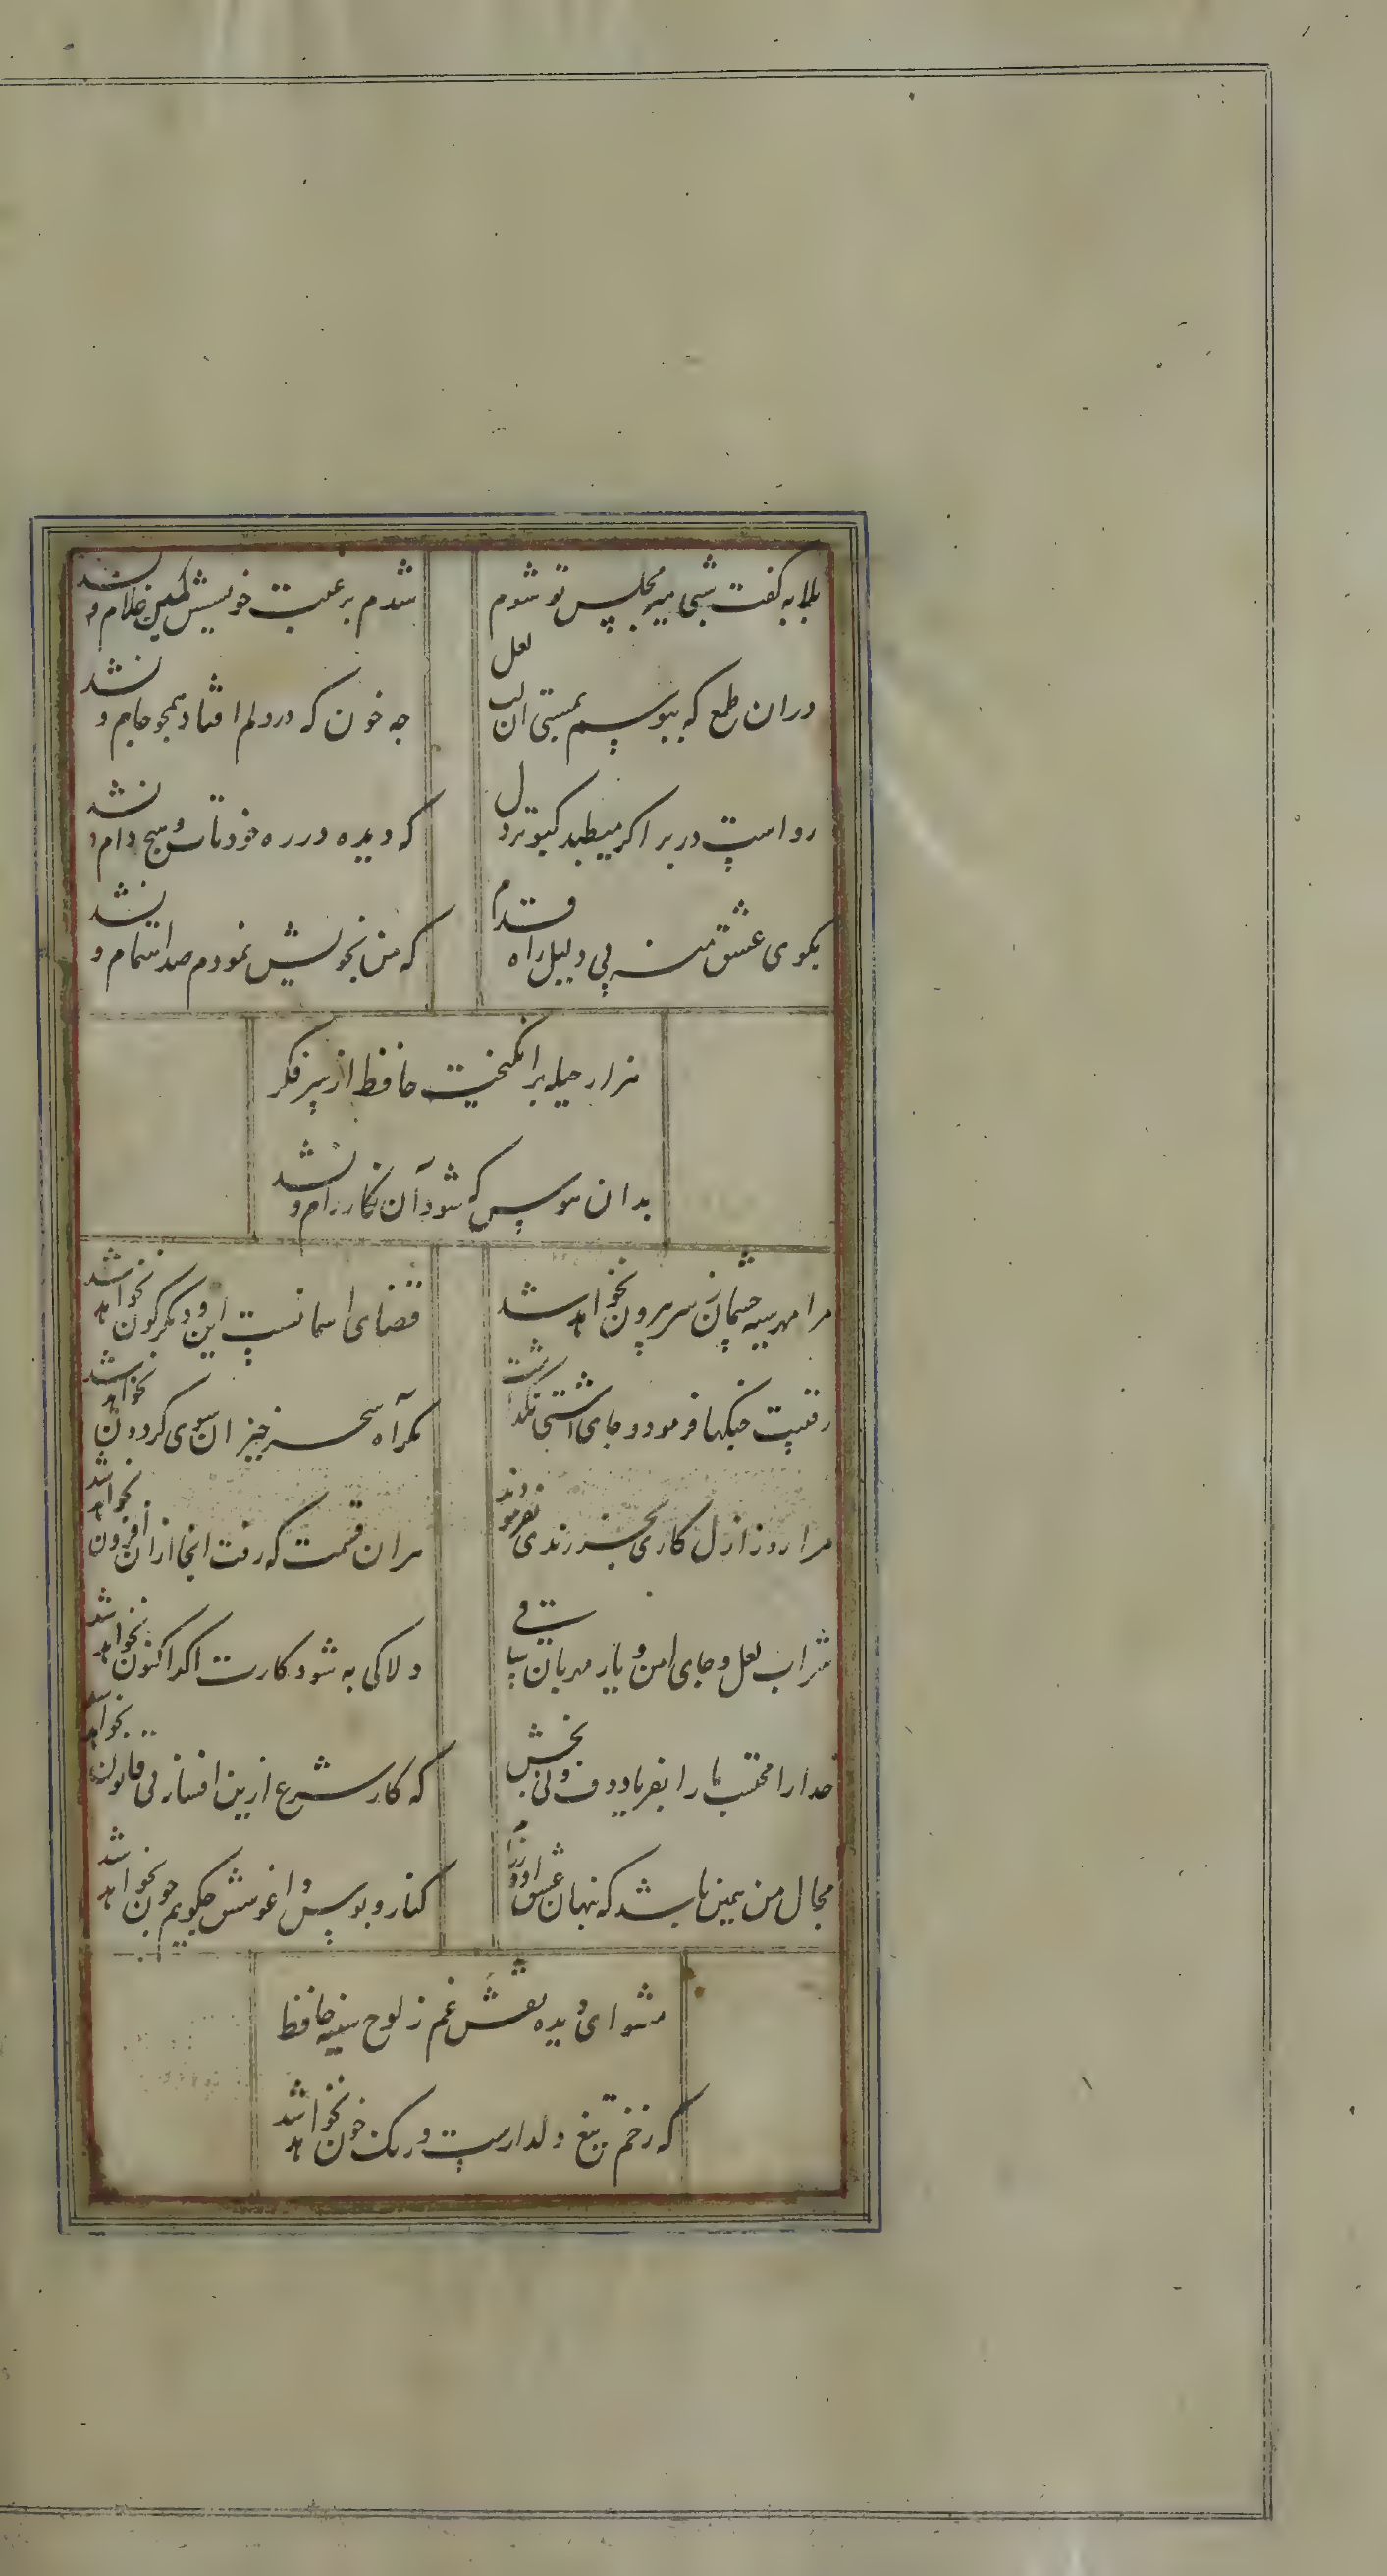 بلابه کفت شبی میر مجلس تو شوم
شدم برغبت خویشش کمین غلام و نشد
دران طمع که ببوسم بمستی ان لب لعل
چه خون که در دلم افتاد همچو جام و نشد
رواست در بر اکر میطپد کبوتر دل
که دیده در ره خود تاب و پیچ دام و نشد
بکوی عشق منه بی دلیل راه قدم
که من بخویش نمودم صد اهتمام و نشد
هزار حیله برانکیخت حافظ از سر فکر
بدان هوس که شود آن نکار رام و نشد
مرا مهر سیه چشمان ز سر بیرون نخواهد شد
قضای اسمانست این و دیکرکون نخواهد شد
رقیبت جنکها فرمود و جای اشتی نکذاشت
مکر آه سحر خیزان سوی کردون نخواهد شد
مرا روز ازل کاری بجز رندی نفرمودند
هران قسمت که رفت انجا ازان افزون نخواهد شد
شراب لعل و جای امن و یار مهربان ساقی
دلا کی به شود کارت اکر اکنون نخواهد شد
خدا را محتسب ما را بفریاد دف و نی بخش
که کار شرع ازین افسانه بی قانون نخواهد شد
مجال من همین باشد که پنهان عشق او ورزم
کنار و بوس و اغوشش چکویم چون نخواهد شد
مشو ای دیده نقش غم ز لوح سینه حافظ
که زخم تیغ دلدارست و رنک خون نخواهد شد